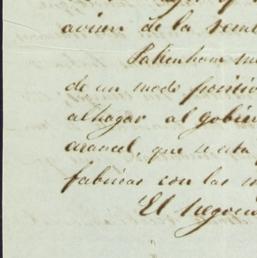 avisen de la
Pakenham
de un modo positiv
alhagar al gobier
arancel, que se esta
fabricas con las
El negocio